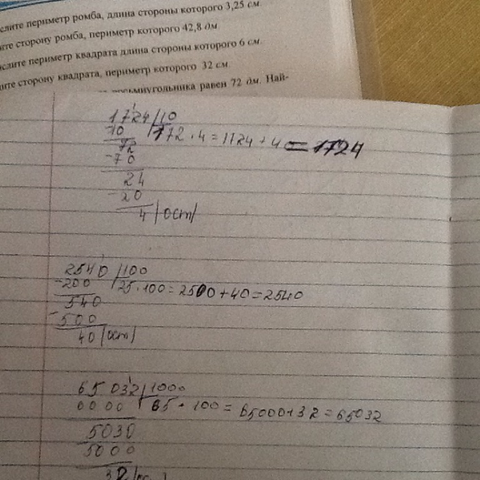 слите периметр ромба, длина стороны которого 3,25 см.
ите сторону ромба, периметр которого 42,8 дм.
ислите периметр квадрата длина стороны которого 6 см.
ите сторону квадрата, периметр которого 32 см.
восьмиугольника равен 72 дм. Най-
1724 10
10 172 · 4 = 1724 + 4 = 1724
72
-70
24
-20
4 (ост)
2540 100
-200 25 · 100 = 2500 + 40 = 2540
540
-500
40 (ост)
65032 1000
0000 65 · 100 = 65000 + 32 = 65032
5030
5000
32